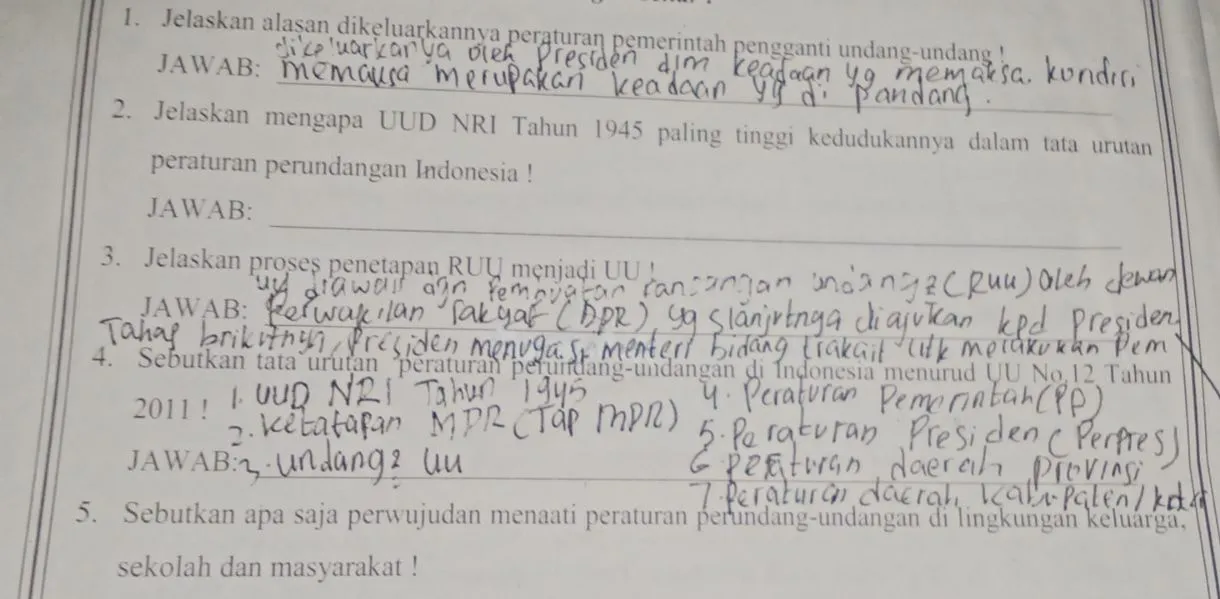 1. Jelaskan alasan dikeluarkannya peraturan pemerintah pengganti undang-undang !
dikeluarkanya oleh Presiden dlm keadaan yg memaksa. kondisi
JAWAB: memaksa merupakan keadaan yg di pandang.
2. Jelaskan mengapa UUD NRI Tahun 1945 paling tinggi kedudukannya dalam tata urutan
peraturan perundangan Indonesia !
JAWAB:
3. Jelaskan proses penetapan RUU menjadi UU !
uu diawali dgn rancangan undang2 (RUU) oleh dewan
JAWAB: Perwakilan rakyat (DPR) yg slanjutnya diajukan kpd Presiden
Tahap brikutnya, Presiden menugas menteri bidang utk melakukan Pem
4. Sebutkan tata urutan peraturan perundang-undangan di Indonesia menurud UU No.12 Tahun
2011 !
1. UUD NRI Tahun 1945
2. ketatapan MPR (Tap MPR)
JAWAB: 3. undang2 uu
4. Peraturan Pemerintah (PP)
5. Peraturan Presiden (Perpres)
6 peraturan daerah Provinsi
7. Peraturan daerah kabupaten/kota
5. Sebutkan apa saja perwujudan menaati peraturan perundang-undangan di lingkungan keluarga,
sekolah dan masyarakat !